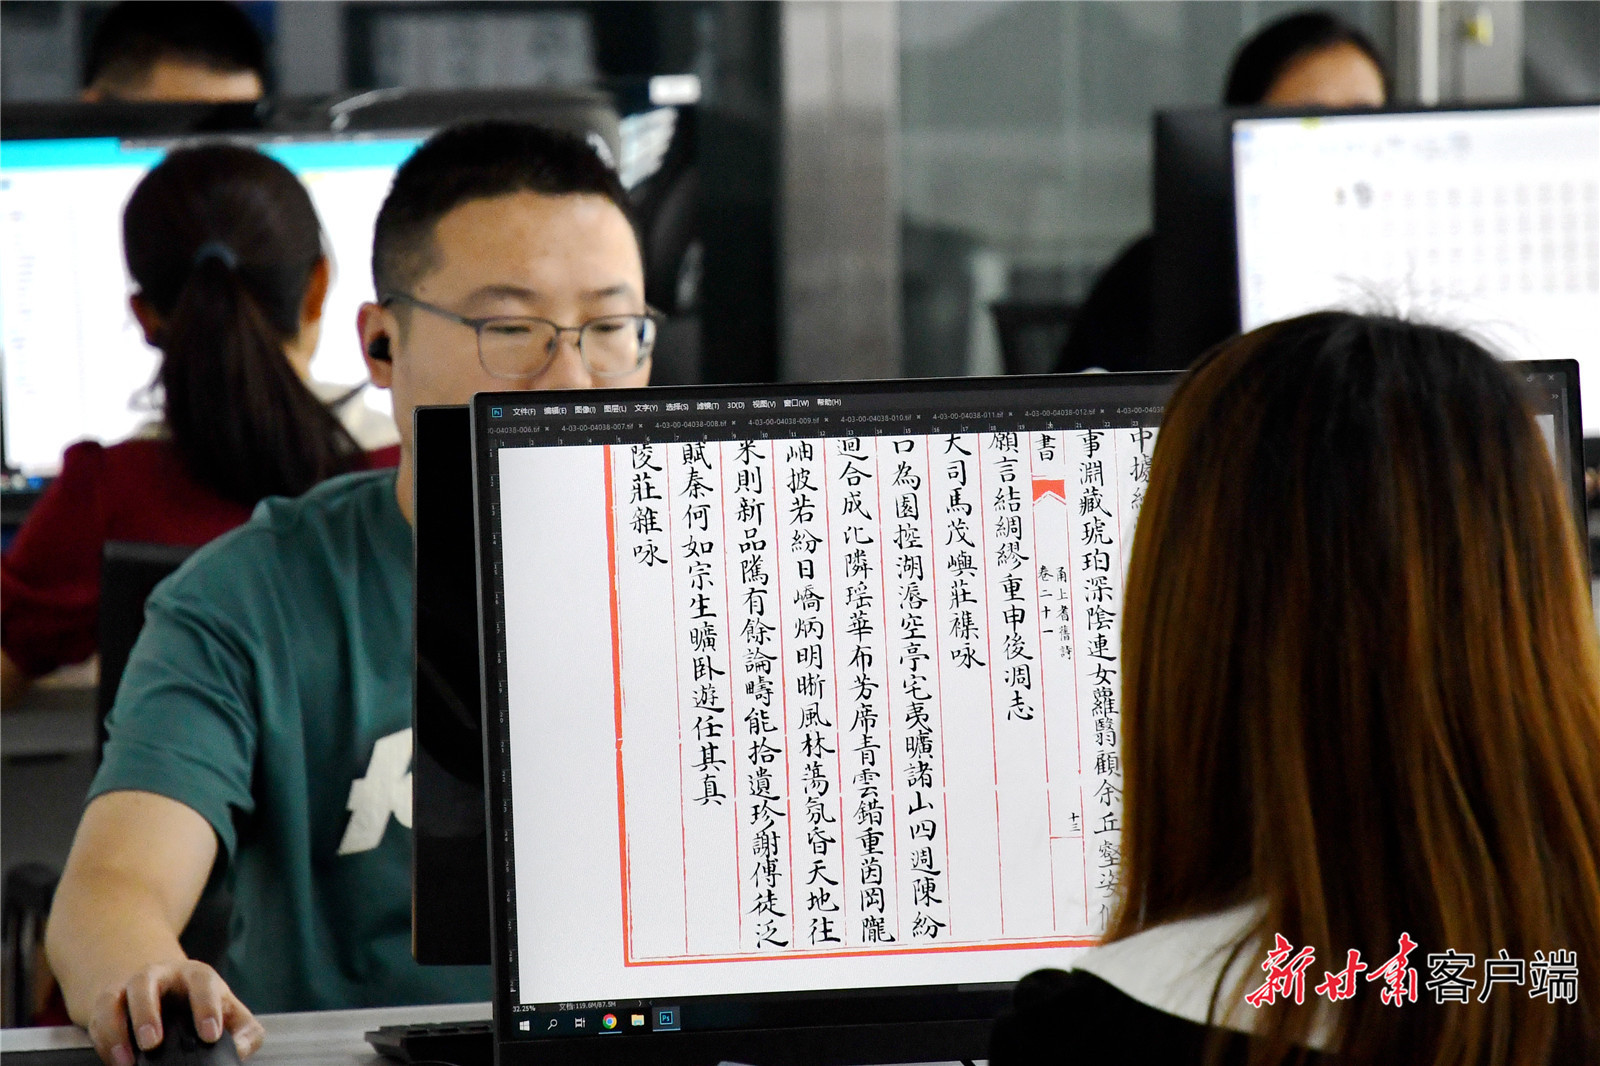 文件(F) 编辑(E) 图像(I) 图层(L) 文字(Y) 选择(S) 滤镜(T) 3D(D) 视图(V) 窗口(W) 帮助(H)
00-04038-006.tif × 4-03-00-04038-007.tif × 4-03-00-04038-008.tif × 4-03-00-04038-009.tif × 4-03-00-04038-010.tif × 4-03-00-04038-011.tif × 4-03-00-04038-012.tif × 4-03-00-04038
中據
事淵藏琥珀深陰連女蘿翳顧余丘壑姿
書
甬上耆舊詩
卷二十一
十三
願言結綢繆重申後凋志
大司馬茂嶼莊襍咏
口為園控湖漘空亭宅夷曠諸山四週陳紛
過合成沁隣瑶華布芳席青雲錯重茵岡隴
岫披若紛日嶠炳明晰風林蕩氛昏天地往
米則新品隲有餘論疇能拾遺珍謝傅徒泛
賦秦何如宗生曠卧遊任其真
陵莊雜咏
32.25% 文档:119.6M/87.5M
新甘肃客户端